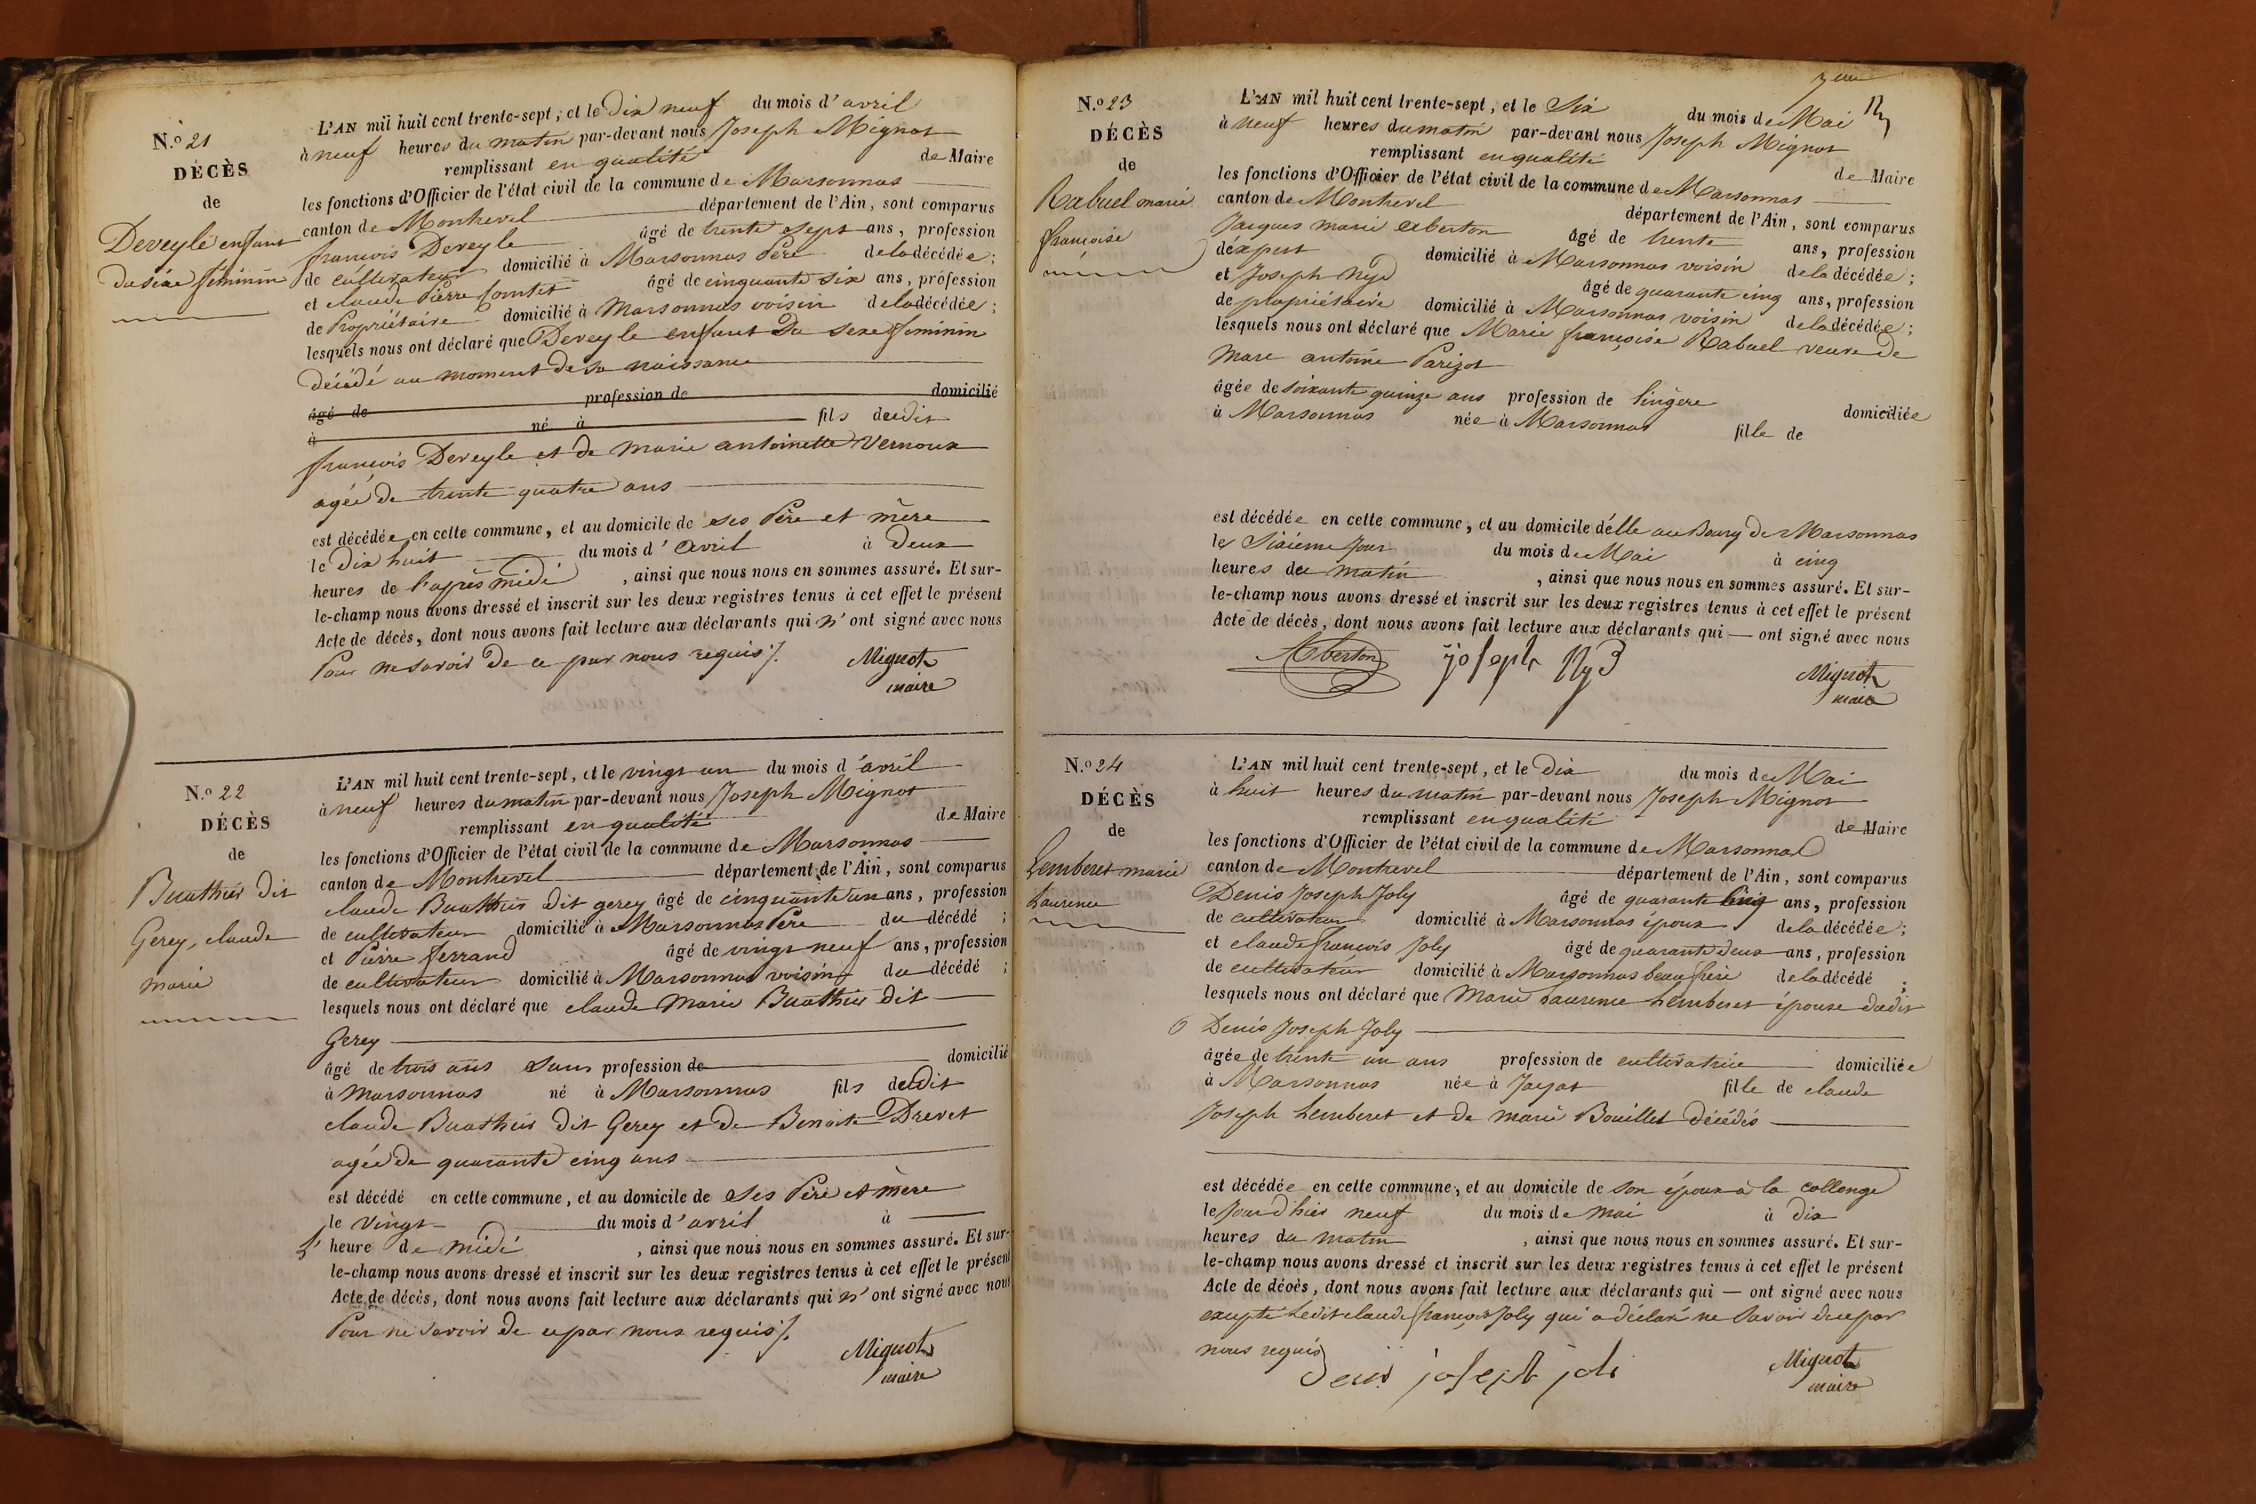 N.º 21
DÉCÈS
de
Deveyle enfant
du sexe féminin
L'AN mil huit cent trente-sept, et le dix neuf du mois d'avril
à neuf heures du matin par-devant nous Joseph Mignot
remplissant en qualité de Maire
les fonctions d'Officier de l'état civil de la commune de Marsonnas
canton de Montrevel département de l'Ain, sont comparus
françois Deveyle âgé de trente sept ans, profession
de cultivateur domicilié à Marsonnas Père de la décédée ;
et claude Pierre Comtet âgé de cinquante six ans, profession
de Propriétaire domicilié à Marsonnas voisin de la décédée ;
lesquels nous ont déclaré que Deveyle enfant du sexe féminin
décédé au moment de sa naissance
âgé de profession de domicilié
à né à fils dudit
françois Deveyle et de marie antoinette Vernoux
agée de trente quatre ans
est décédée en cette commune, et au domicile de ses Père et mère
le dix huit du mois d'avril à deux
heures de l'après midi, ainsi que nous nous en sommes assuré. Et sur-
le-champ nous avons dressé et inscrit sur les deux registres tenus à cet effet le présent
Acte de décès, dont nous avons fait lecture aux déclarants qui n'ont signé avec nous
Pour ne savoir de ce par nous requis ./.
Mignot
maire
N.º 22
DÉCÈS
de
Buathier dit
Gerey, claude
marie
L'AN mil huit cent trente-sept, et le vingt un du mois d'avril
à neuf heures du matin par-devant nous Joseph Mignot
remplissant en qualité de Maire
les fonctions d'Officier de l'état civil de la commune de Marsonnas
canton de Montrevel département de l'Ain, sont comparus
claude Buathier dit gerey âgé de cinquante un ans, profession
de cultivateur domicilié à Marsonnas Père du décédé ;
et Pierre ferrand âgé de vingt neuf ans, profession
de cultivateur domicilié à Marsonnas voisin du décédé ;
lesquels nous ont déclaré que claude Marie Buathier dit
Gerey
âgé de trois ans sans profession de domicilié
à Marsonnas né à Marsonnas fils dudit
claude Buathier dit Gerey et de Benoite Drevet
agée de quarante cinq ans
est décédé en cette commune, et au domicile de ses Père et mère
le vingt du mois d'avril à
heure de midi, ainsi que nous nous en sommes assuré. Et sur-
le-champ nous avons dressé et inscrit sur les deux registres tenus à cet effet le présent
Acte de décès, dont nous avons fait lecture aux déclarants qui n'ont signé avec nous
Pour ne savoir de ce par nous requis ./.
Mignot
maire
N.º 23
DÉCÈS
de
Rabuel marie
françoise
L'AN mil huit cent trente-sept, et le Six du mois de Mai
à neuf heures du matin par-devant nous Joseph Mignot
remplissant en qualité de Maire
les fonctions d'Officier de l'état civil de la commune de Marsonnas
canton de Montrevel département de l'Ain, sont comparus
Jacques marie Eberton âgé de trente ans, profession
d'éxpert domicilié à Marsonnas voisin de la décédée ;
et Joseph Nyd âgé de quarante cinq ans, profession
de propriétaire domicilié à Marsonnas voisin de la décédée ;
lesquels nous ont déclaré que Marie françoise Rabuel veuve de
Marc antoine Parizot
âgée de soixante quinze ans profession de lingère domiciliée
à Marsonnas née à Marsonnas fille de
est décédée en cette commune, et au domicile d'élle au Bourg de Marsonnas
le Sixieme Jour du mois de Mai à cinq
heures du matin, ainsi que nous nous en sommes assuré. Et sur-
le-champ nous avons dressé et inscrit sur les deux registres tenus à cet effet le présent
Acte de décès, dont nous avons fait lecture aux déclarants qui — ont signé avec nous
Eberton joseph Nyd
Mignot
maire
N.º 24
DÉCÈS
de
Lemberet marie
Laurence
L'AN mil huit cent trente-sept, et le dix du mois de Mai
à huit heures du matin par-devant nous Joseph Mignot
remplissant en qualité de Maire
les fonctions d'Officier de l'état civil de la commune de Marsonnas
canton de Montrevel département de l'Ain, sont comparus
Denis Joseph Joly âgé de quarante cinq ans, profession
de cultivateur domicilié à Marsonnas époux de la décédée ;
et claude françois Joly âgé de quarante deux ans, profession
de cultivateur domicilié à Marsonnas beau frère de la décédé ;
lesquels nous ont déclaré que Marie Laurence Lemberet épouse dudit
Denis Joseph Joly
âgée de trente un ans profession de cultivatrice domiciliée
à Marsonnas née à Jayat fille de claude
Joseph Lemberet et de marie Bouillet décédés
est décédée en cette commune, et au domicile de son époux à la collonge
le Jour d'hier neuf du mois de mai à dix
heures du matin, ainsi que nous nous en sommes assuré. Et sur-
le-champ nous avons dressé et inscrit sur les deux registres tenus à cet effet le présent
Acte de décès, dont nous avons fait lecture aux déclarants qui — ont signé avec nous
excepté Ledit claude françois Joly qui a déclaré ne savoir de ce par
nous requis
Denis joseph joli
Mignot
maire